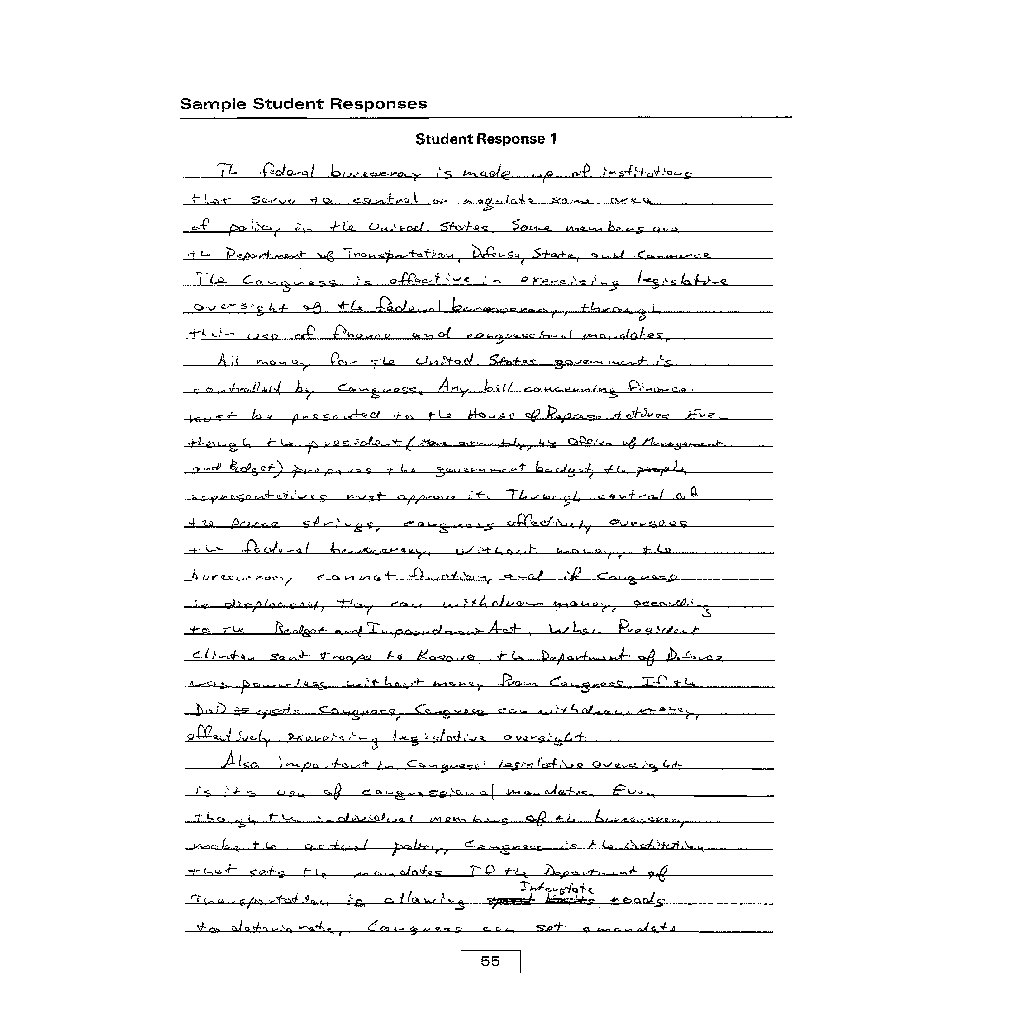 Sample Student Responses
Student Response 1
The federal bureaucracy is made up of institutions
that serve to control or regulate some area
of policy in the United States. Some members are
the Department of Transportation, Defense, State, and Commerce
The Congress is effective in exercising legislative
oversight of the federal bureaucracy through
their use of finance and congressional mandates.
All money for the United States government is
controlled by Congress. Any bill concerning finance
must be presented to the House of Representatives Even
though the president ( Office of Management
and Budget) proposes the government budget, the
representatives must approve it. Through control of
the purse strings, congress effectively oversees
the federal bureaucracy. Without money, the
bureaucracy cannot function, and if Congress
is displeased, they can withdraw money, according
to the Budget and Impoundment Act. When President
Clinton sent troops to Kosovo, the Department of Defense
was powerless without money from Congress. If the
DoD Congress, Congress can withdraw money,
effectively exercising legislative oversight.
Also important in Congress' legislative oversight
is its use of congressional mandates. Even
though the individual members of the bureaucracy
make the actual policy, Congress is the institution
that sets the mandates. If the Department of
Interstate
Transportation is allowing roads
to deteriorate, Congress can set a mandate
55